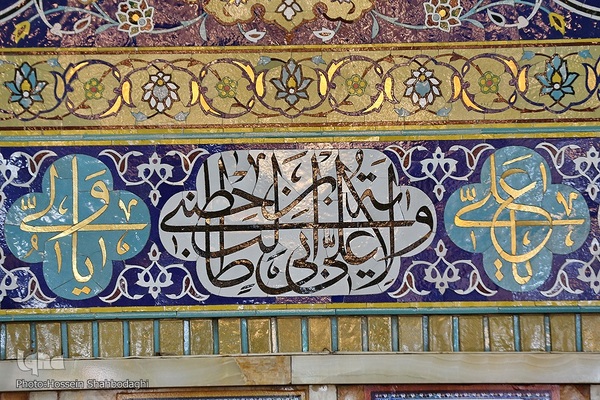 يا علي
ولاية علي بن ابي طالب حصني
iqna
Photo:Hossein Shahbodaghi